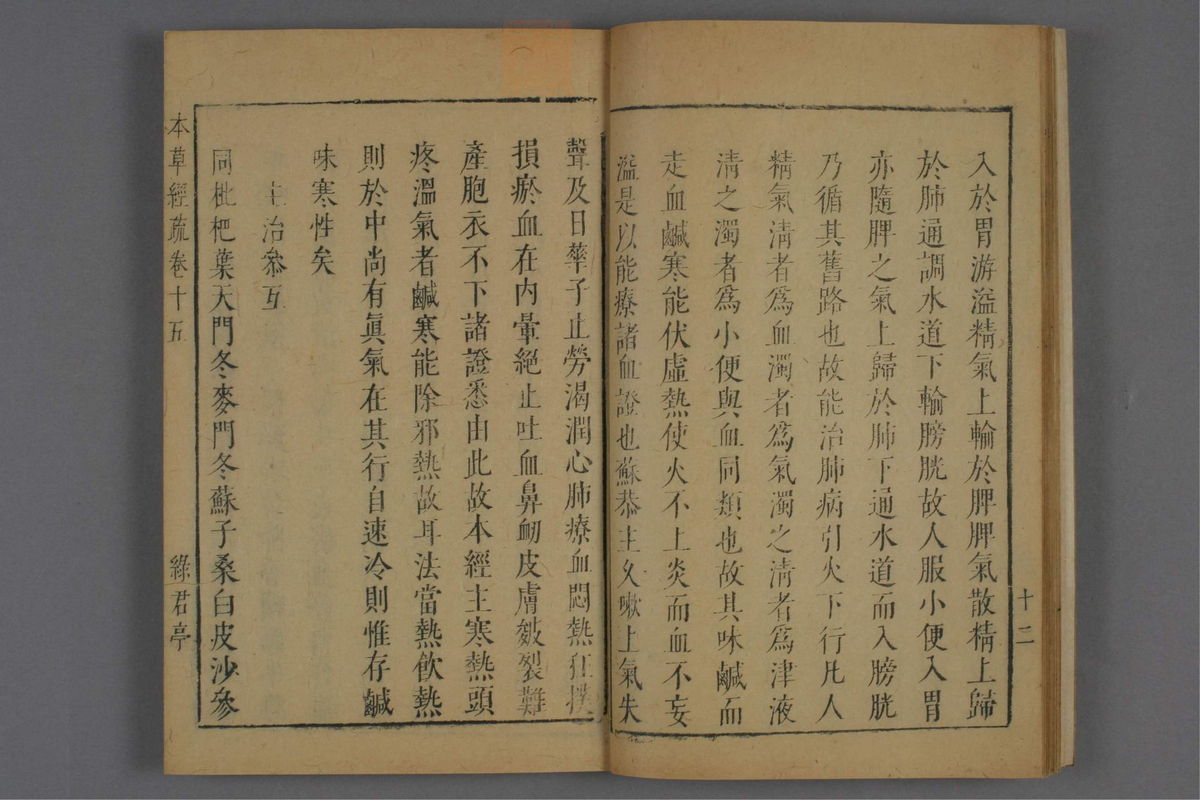 十二
入於胃游溢精氣上輸於脾脾氣散精上歸
於肺通調水道下輸膀胱故人服小便入胃
亦隨脾之氣上歸於肺下通水道而入膀胱
乃循其舊路也故能治肺病引火下行凡人
精氣淸者爲血濁者爲氣濁之淸者爲津液
淸之濁者爲小便與血同類也故其味鹹而
走血鹹寒能伏虛熱使火不上炎而血不妄
溢是以能療諸血證也蘇恭主久嗽上氣失
聲及日華子止勞渴潤心肺療血悶熱狂撲
損瘀血在内暈絕止吐血鼻衂皮膚皴裂難
產胞衣不下諸證悉由此故本經主寒熱頭
疼溫氣者鹹寒能除邪熱故耳法當熱飮熱
則於中尚有眞氣在其行自速冷則惟存鹹
味寒性矣
主治叅互
同枇杷葉天門冬麥門冬蘇子桑白皮沙參
本草經疏卷十五
綠君亭